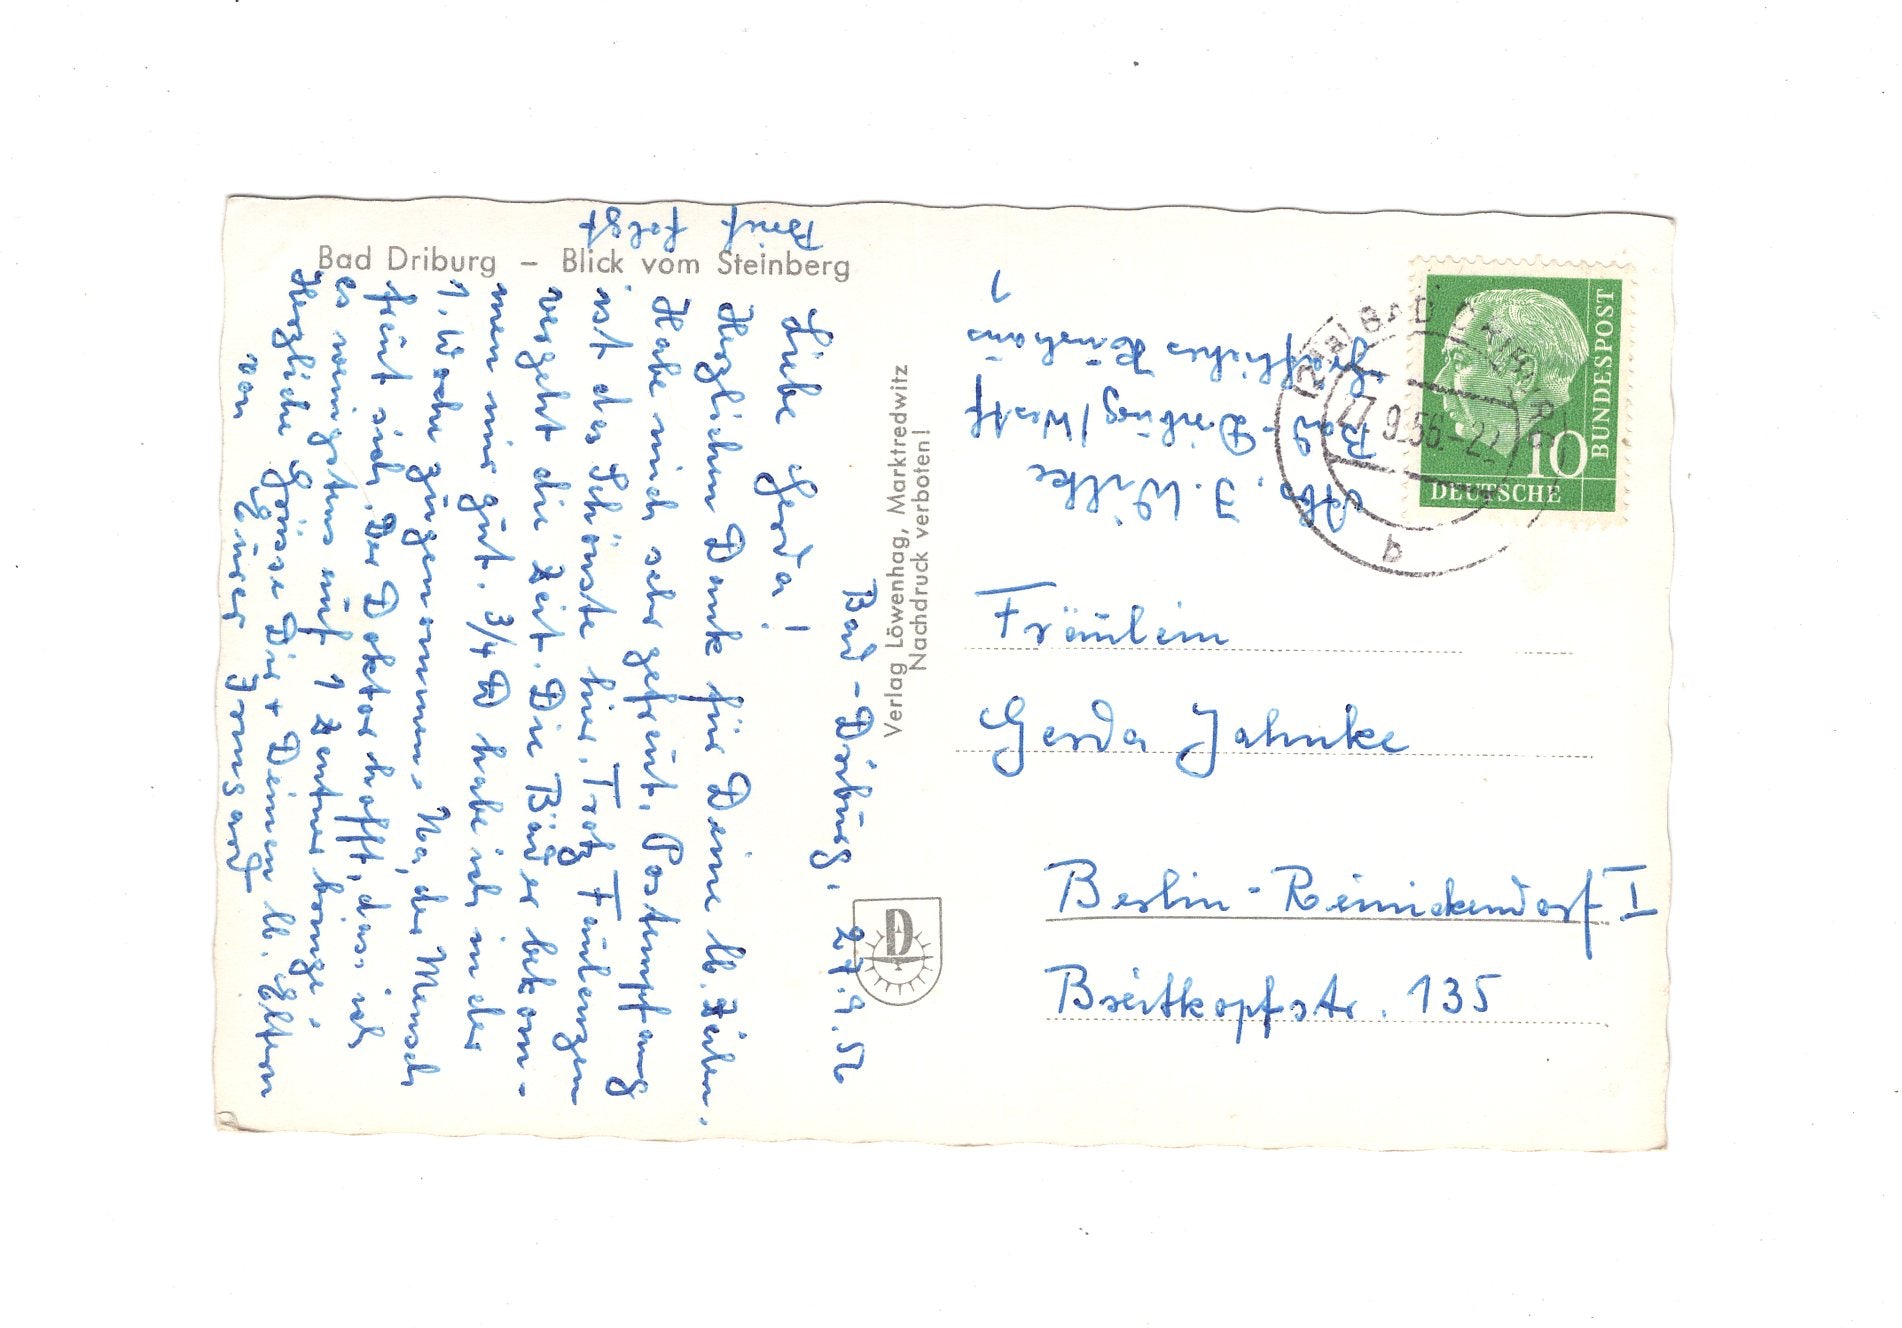 Bad Driburg – Blick vom Steinberg
Bad-Driburg, 27.9.56
Liebe Gerda!
Herzlichen Dank für Deine lb. Zeilen.
Habe mich sehr gefreut. Postempfang
ist das Schönste hier. Trotz Faulenzen
vergeht die Zeit. Die Bäder bekom-
men mir gut. 3/4 ℔ habe ich in der
1. Woche zugenommen. Na, der Mensch
freut sich. Der Doktor hofft, dass ich
es wenigstens auf 1 Zentner bringe.
Herzliche Grüsse Dir + Deinen lb. Eltern
von Eurer Irmgard
Brief folgt
Verlag Löwenhag, Marktredwitz
Nachdruck verboten!
D
Abs. I. Wilke
Bad-Driburg/Westf
Gräfliches Kurhaus
1
(21a) BAD DRIBURG
27.9.56.-22
a
10
DEUTSCHE
BUNDESPOST
Fräulein
Gerda Jahnke
Berlin-Reinickendorf I
Breitkopfstr. 135